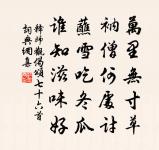 萬里無寸草
衲僧何處討
蘸雪吃冬瓜
誰知滋味好
釋師觀偈頌七十六首
詞典網集